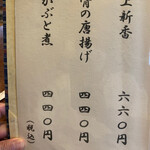 上新香 六六〇円
骨の唐揚げ 四四〇円
かぶと煮 四四〇円
(税込)